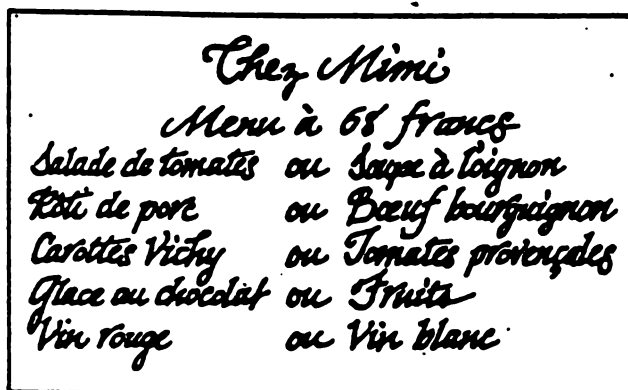 Chez Mimi
Menu à 68 francs
Salade de tomates ou Soupe à l'oignon
Rôti de porc ou Bœuf bourguignon
Carottes Vichy ou Tomates provençales
Glace au chocolat ou Fruits
Vin rouge ou Vin blanc